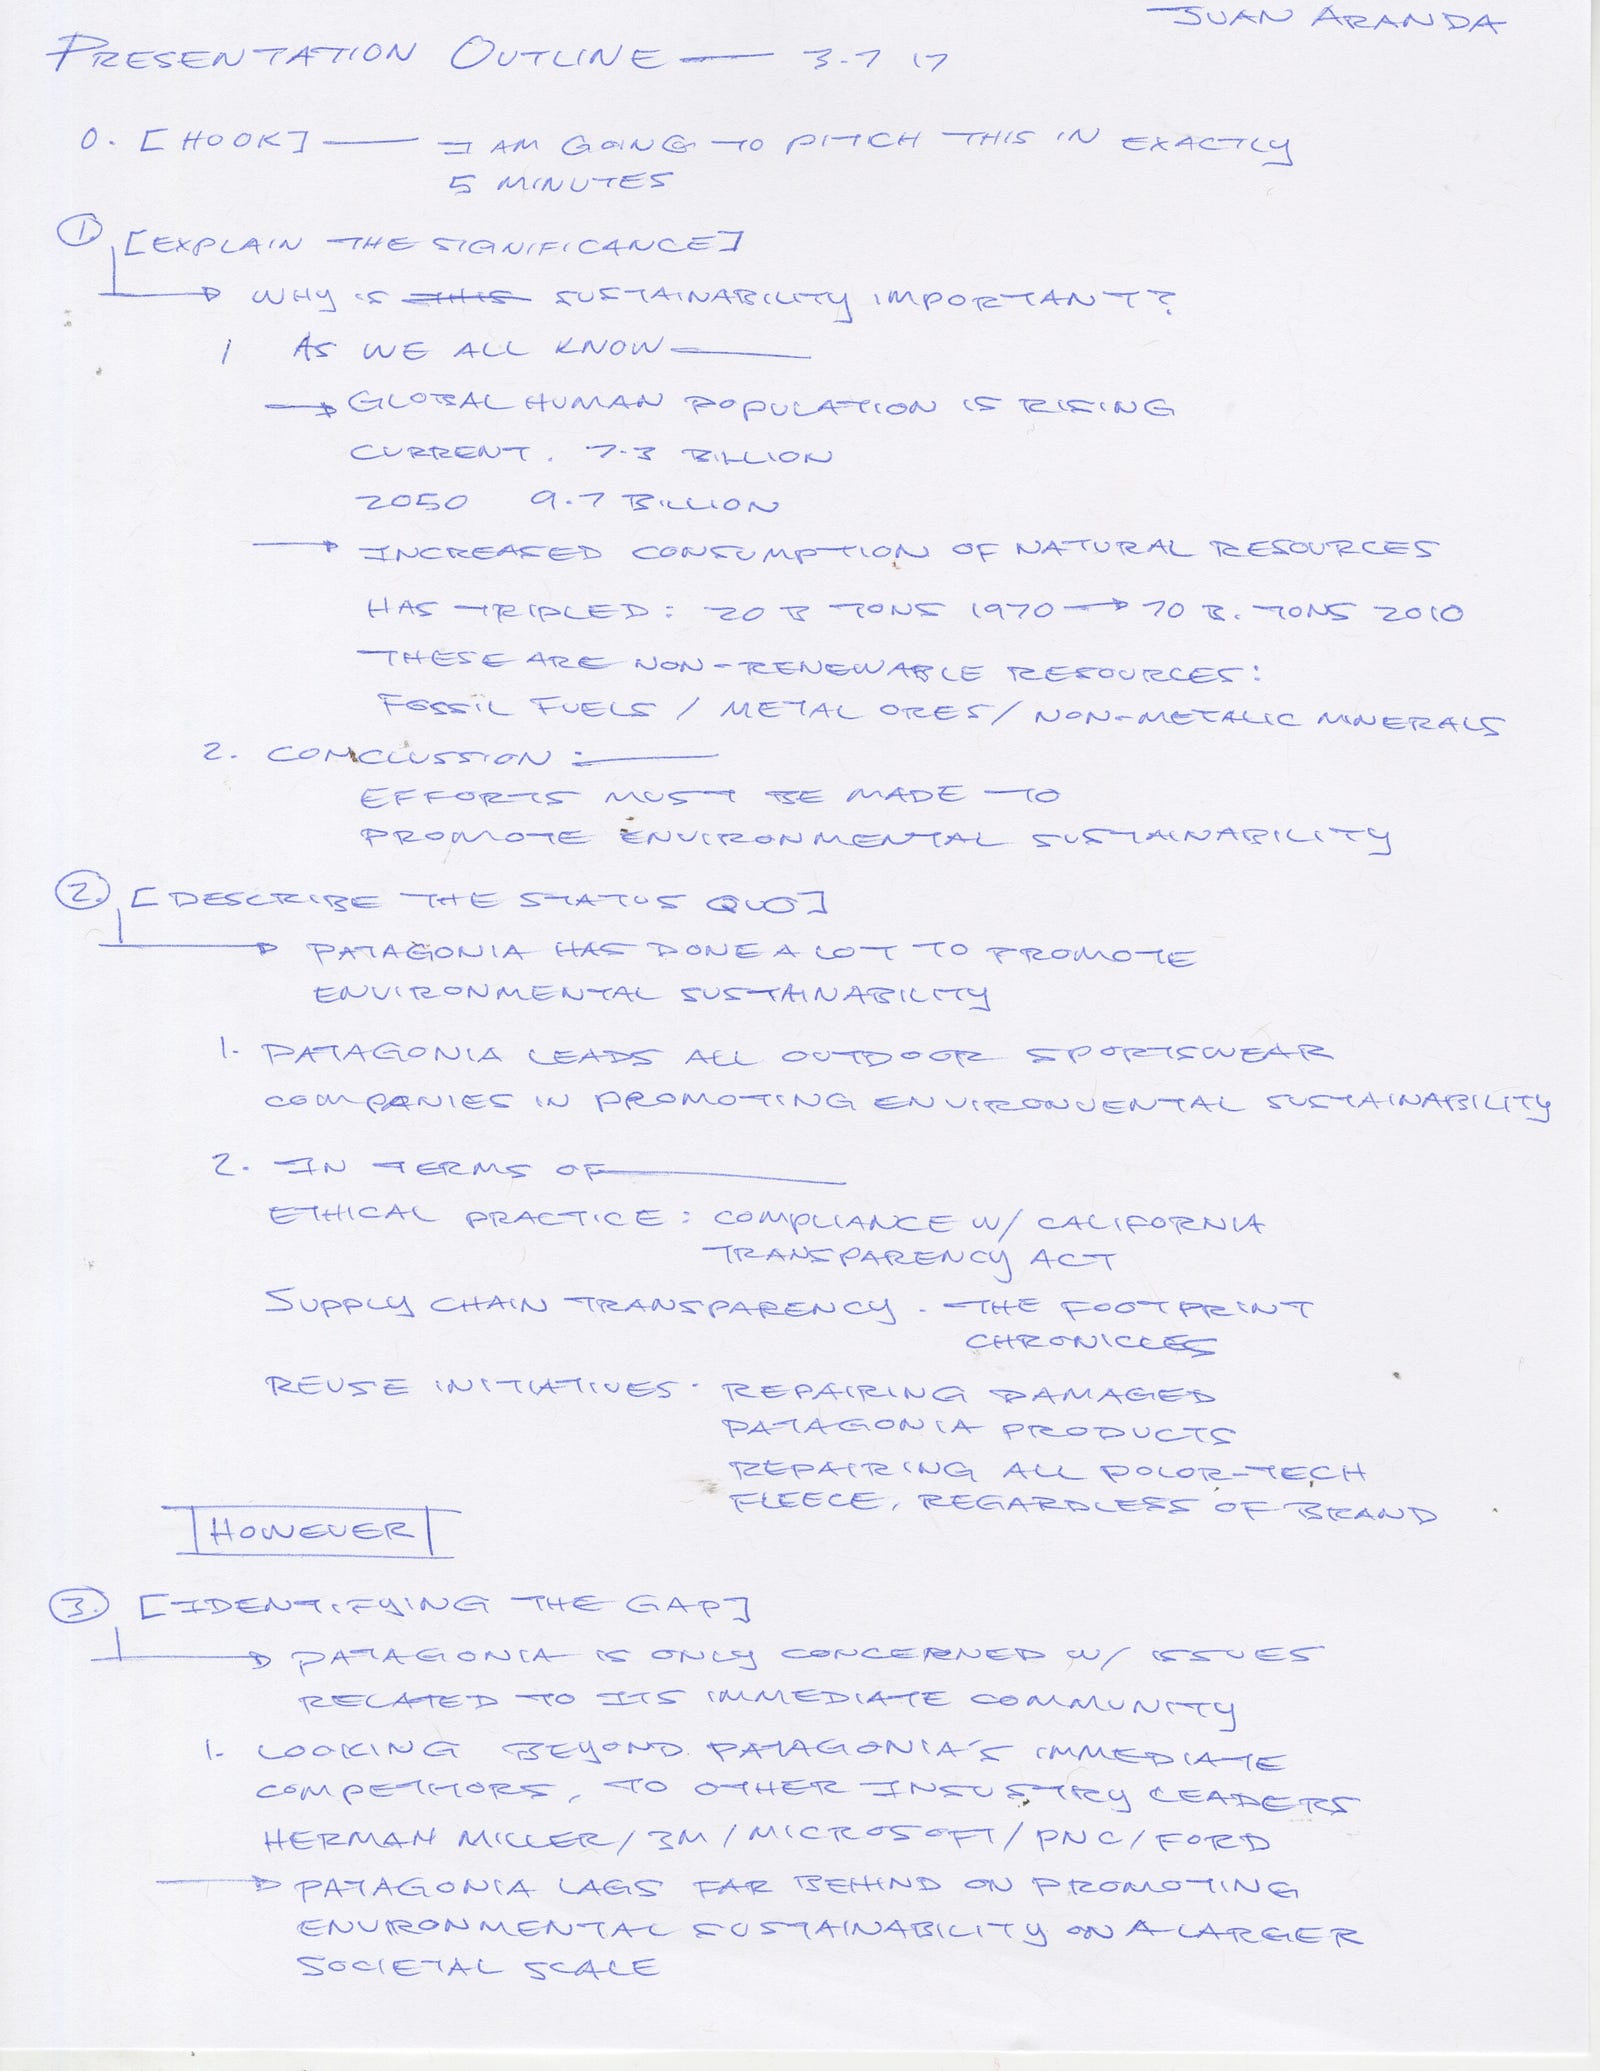 JUAN ARANDA
PRESENTATION OUTLINE — 3-7 17
0. [HOOK] — I AM GOING TO PITCH THIS IN EXACTLY
5 MINUTES
1. [EXPLAIN THE SIGNIFICANCE]
→ WHY IS THIS SUSTAINABILITY IMPORTANT?
1 AS WE ALL KNOW —
→ GLOBAL HUMAN POPULATION IS RISING
CURRENT. 7.3 BILLION
2050 9.7 BILLION
→ INCREASED CONSUMPTION OF NATURAL RESOURCES
HAS TRIPLED: 20 B TONS 1970 → 70 B. TONS 2010
THESE ARE NON-RENEWABLE RESOURCES:
FOSSIL FUELS / METAL ORES / NON-METALIC MINERALS
2. CONCLUSSION: —
EFFORTS MUST BE MADE TO
PROMOTE ENVIRONMENTAL SUSTAINABILITY
2. [DESCRIBE THE STATUS QUO]
→ PATAGONIA HAS DONE A LOT TO PROMOTE
ENVIRONMENTAL SUSTAINABILITY
1. PATAGONIA LEADS ALL OUTDOOR SPORTSWEAR
COMPANIES IN PROMOTING ENVIRONMENTAL SUSTAINABILITY
2. IN TERMS OF —
ETHICAL PRACTICE: COMPLIANCE W/ CALIFORNIA
TRANSPARENCY ACT
SUPPLY CHAIN TRANSPARENCY. THE FOOTPRINT
CHRONICLES
REUSE INITIATIVES. REPAIRING DAMAGED
PATAGONIA PRODUCTS
REPAIRING ALL POLOR-TECH
FLEECE, REGARDLESS OF BRAND
HOWEVER
3. [IDENTIFYING THE GAP]
→ PATAGONIA IS ONLY CONCERNED W/ ISSUES
RELATED TO ITS IMMEDIATE COMMUNITY
1. LOOKING BEYOND PATAGONIA'S IMMEDIATE
COMPETITORS, TO OTHER INSUSTRY LEADERS
HERMAN MILLER / 3M / MICROSOFT / PNC / FORD
→ PATAGONIA LAGS FAR BEHIND ON PROMOTING
ENVIRONMENTAL SUSTAINABILITY ON A LARGER
SOCIETAL SCALE